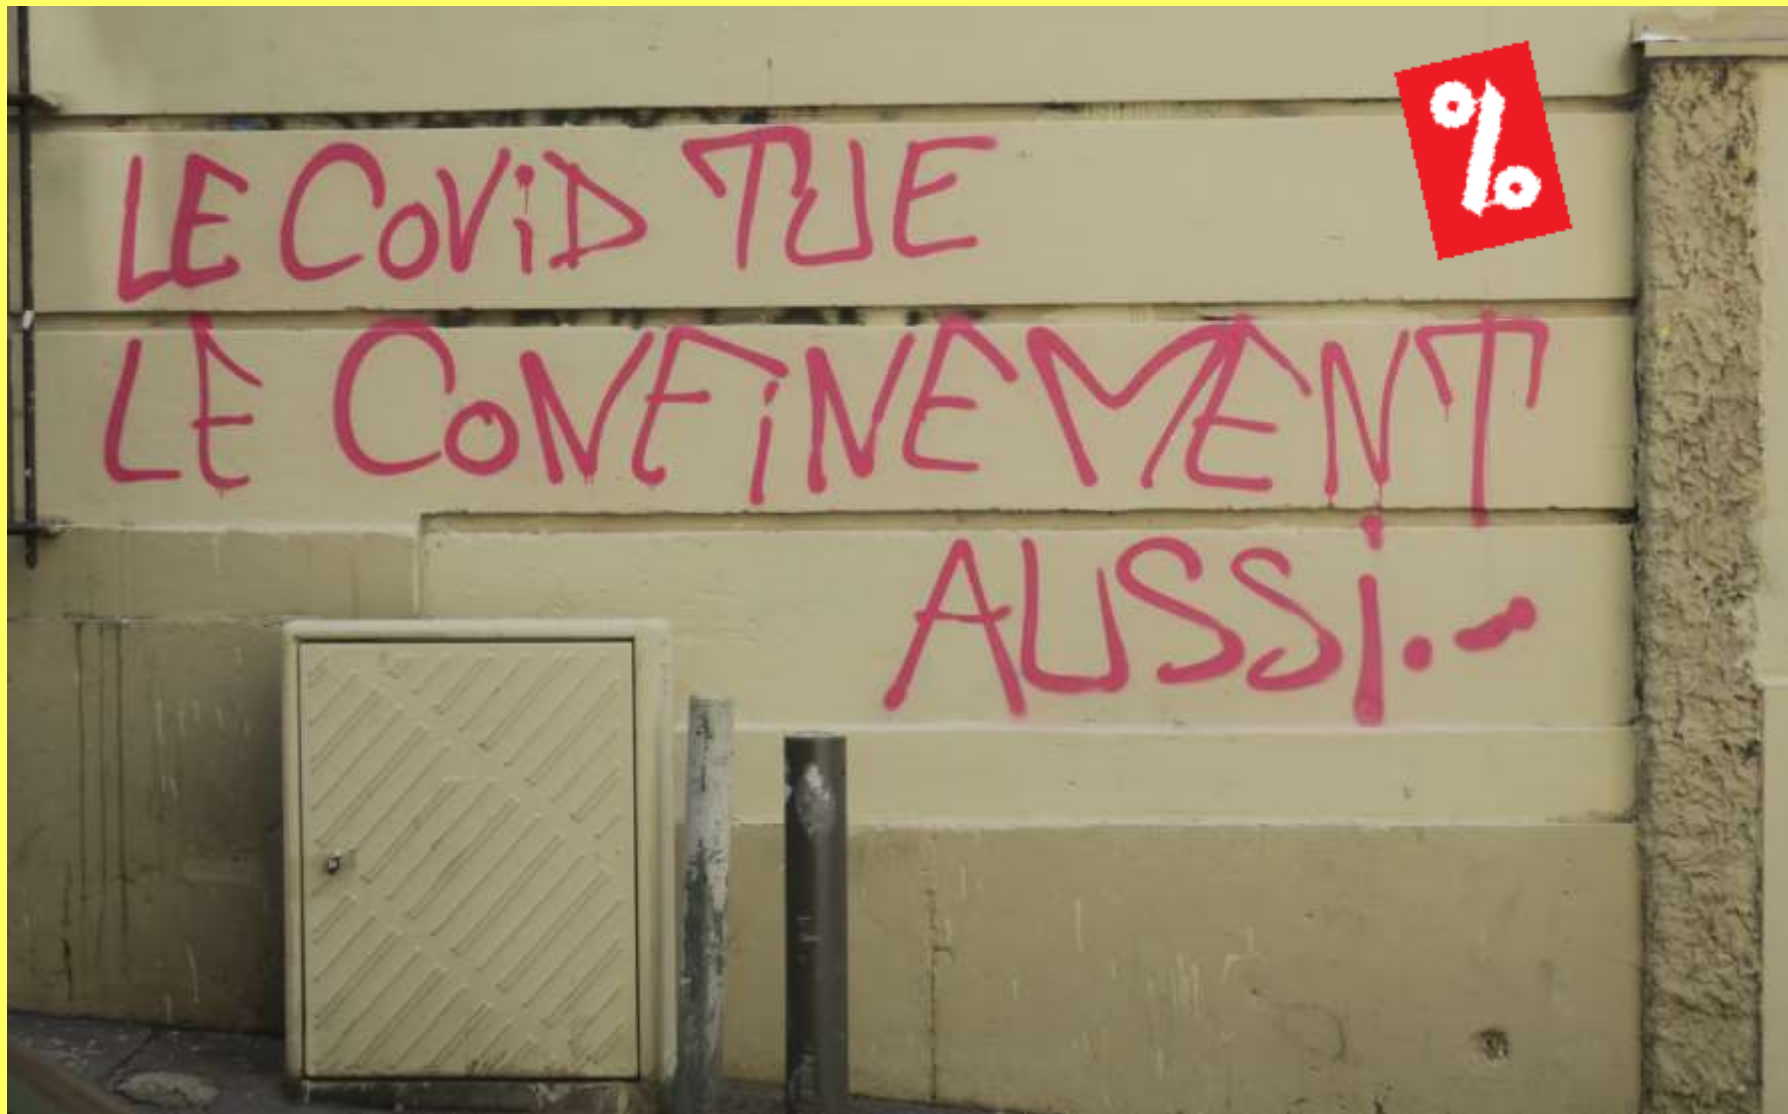 %
LE COViD TUE
LE CONFiNEMENT
AUSSi.-